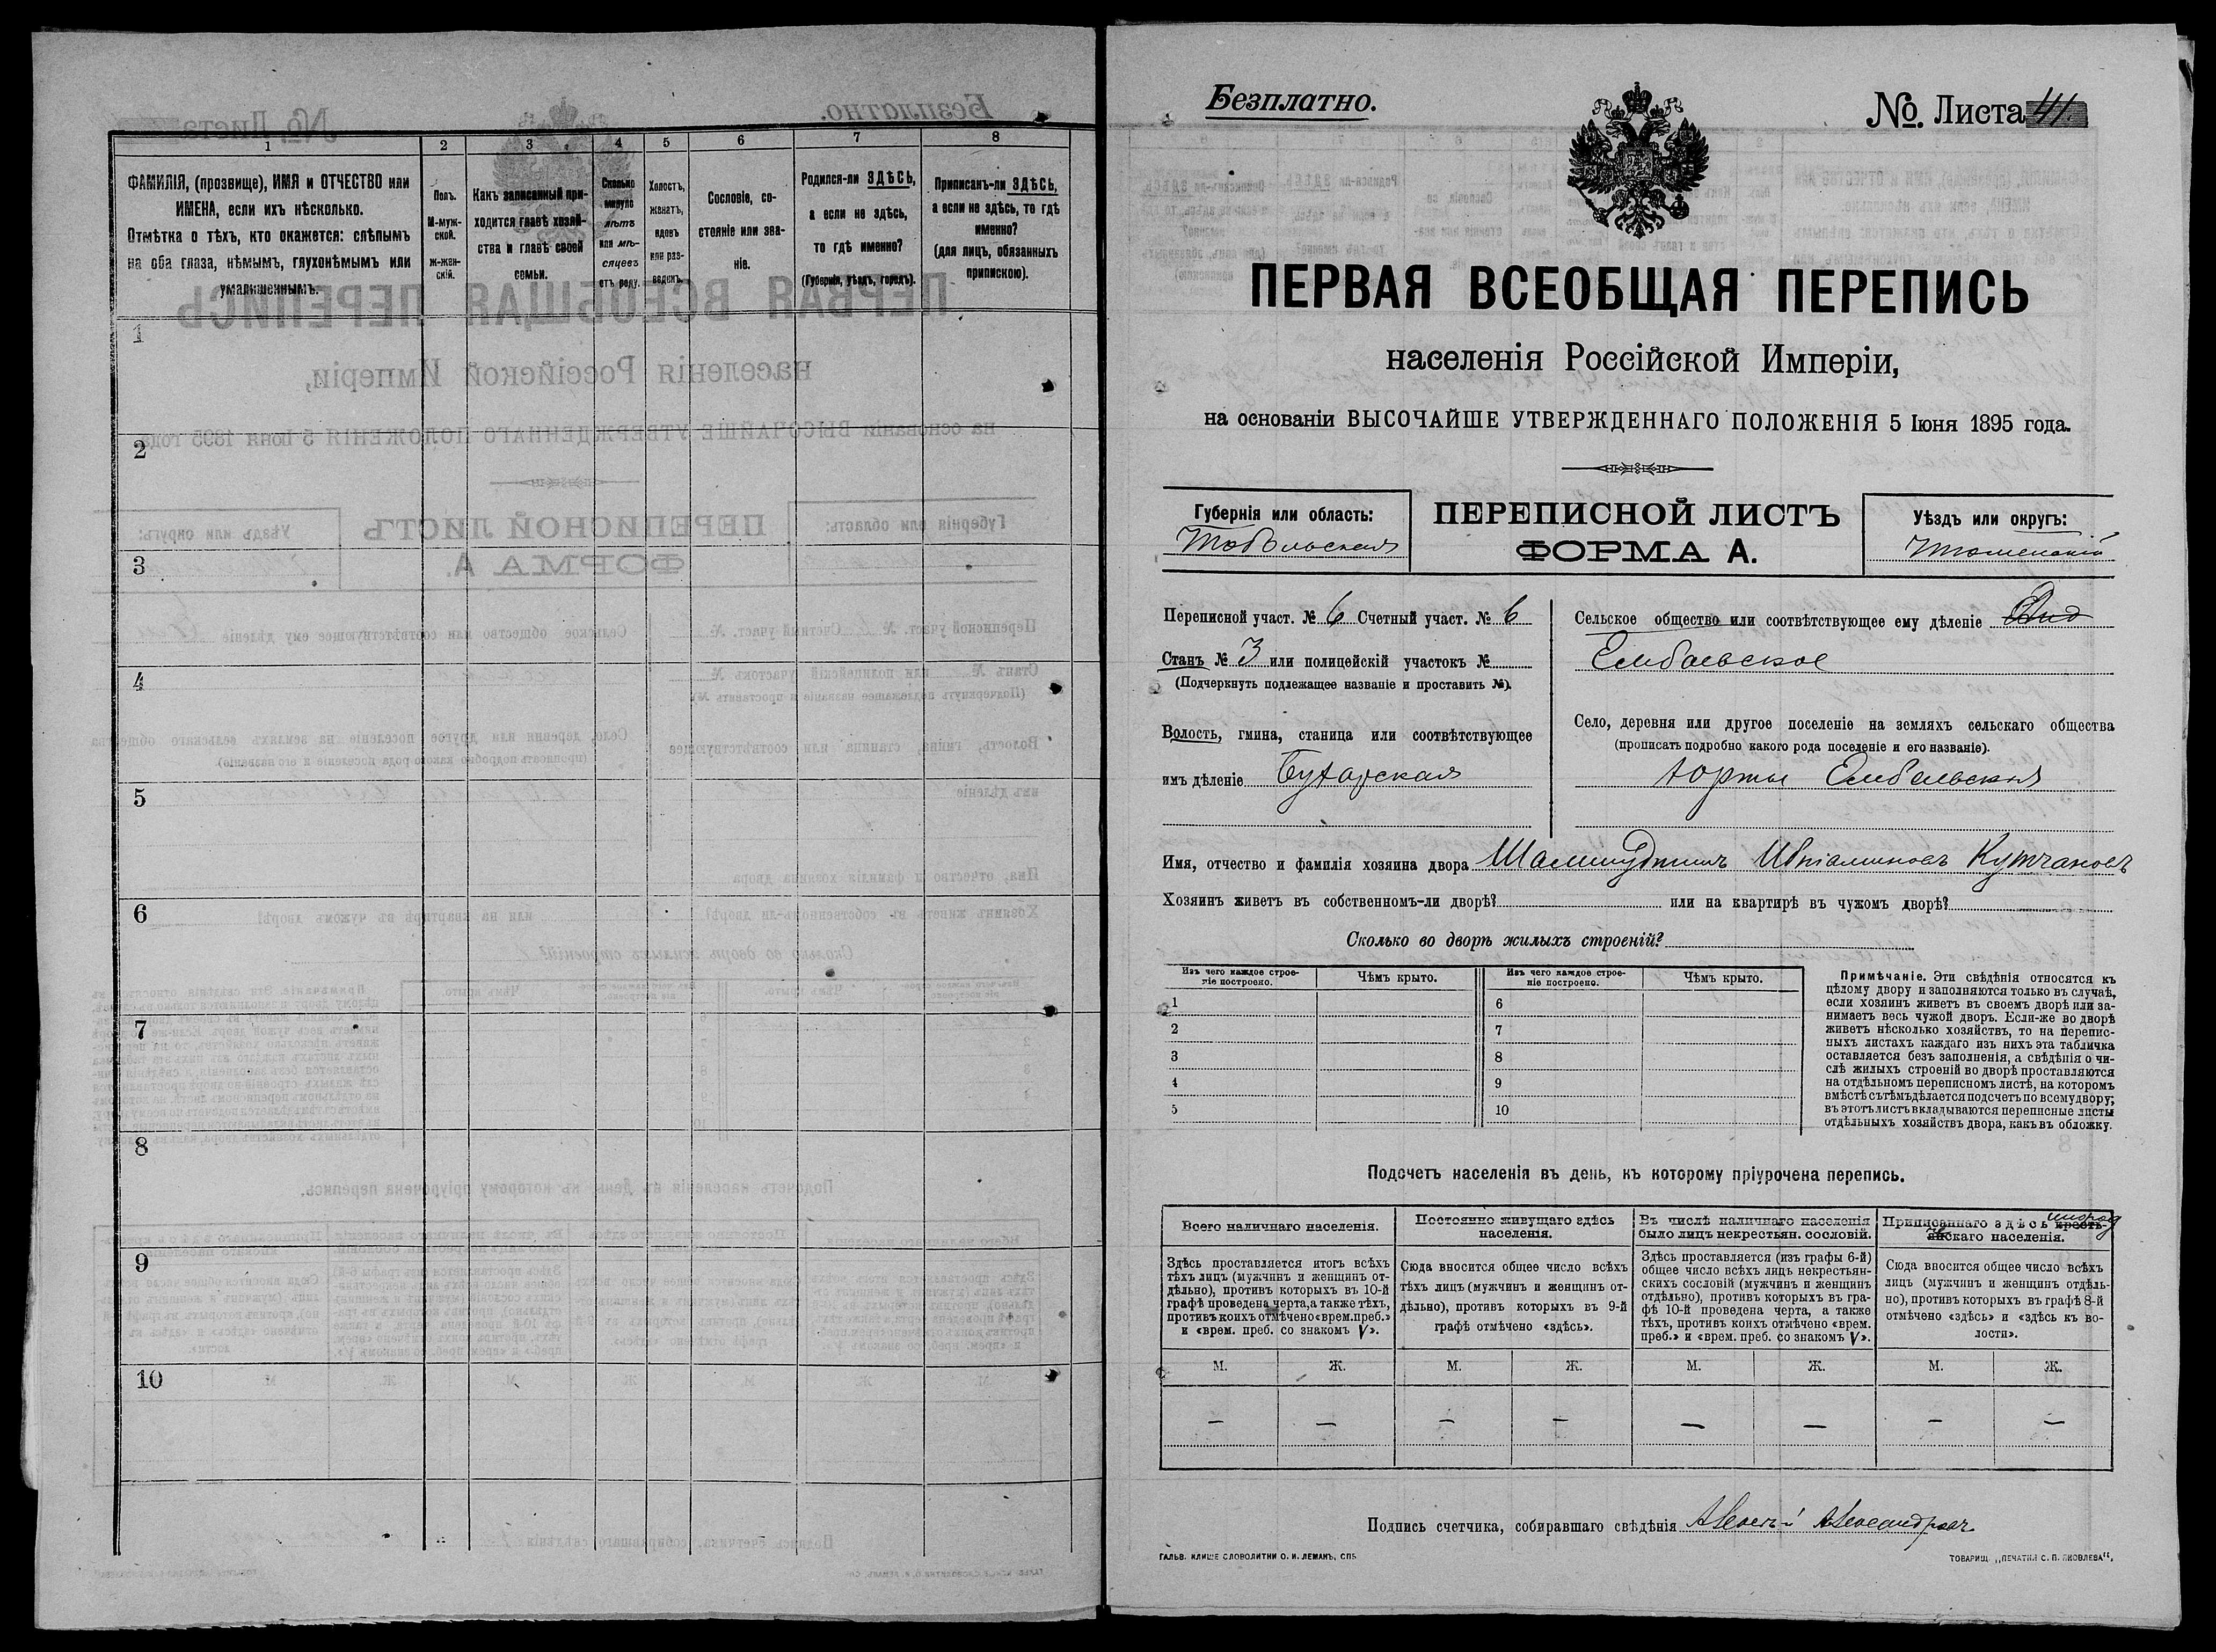 1
2
3
4
5
6
7
8
ФАМИЛІЯ, (прозвище), ИМЯ и ОТЧЕСТВО или
ИМЕНА, если ихъ нѣсколько.
Отмѣтка о тѣхъ, кто окажется: слѣпымъ
на оба глаза, нѣмымъ, глухонѣмымъ или
умалишеннымъ.
Полъ.
М-муж-
ской.
ж-жен-
скій.
Какъ записанный при-
ходится главѣ хозяй-
ства и главѣ своей
семьи.
Сколько
минуло
лѣтъ
или мѣ-
сяцевъ
отъ роду.
Холостъ,
женатъ,
вдовъ
или раз-
веденъ.
Сословіе, со-
стояніе или зва-
ніе.
Родился-ли ЗДѢСЬ,
а если не здѣсь,
то гдѣ именно?
(Губернія, уѣздъ, городъ).
Приписанъ-ли ЗДѢСЬ,
а если не здѣсь, то гдѣ
именно?
(для лицъ, обязанныхъ
припискою).
1
2
3
4
5
6
7
8
9
10
Безплатно.
№ Листа 41.
ПЕРВАЯ ВСЕОБЩАЯ ПЕРЕПИСЬ
населенія Россійской Имперіи,
на основаніи ВЫСОЧАЙШЕ УТВЕРЖДЕННАГО ПОЛОЖЕНІЯ 5 Іюня 1895 года.
Губернія или область:
Тобольская
ПЕРЕПИСНОЙ ЛИСТЪ
ФОРМА А.
Уѣздъ или округъ:
Тюменскій
Переписной участ. № 6 Счетный участ. № 6
Станъ № 3 или полицейскій участокъ №
(Подчеркнуть подлежащее названіе и проставить №).
Волость, гмина, станица или соотвѣтствующее
имъ дѣленіе Бухарская
Сельское общество или соотвѣтствующее ему дѣленіе
Ембаевское
Село, деревня или другое поселеніе на земляхъ сельскаго общества
(прописать подробно какого рода поселеніе и его названіе).
Юрты Ембаевскія
Имя, отчество и фамилія хозяина двора Кутчановъ
Хозяинъ живетъ въ собственномъ-ли дворѣ? или на квартирѣ въ чужомъ дворѣ?
Сколько во дворѣ жилыхъ строеній?
Изъ чего каждое строе-
ніе построено.
Чѣмъ крыто.
Изъ чего каждое строе-
ніе построено.
Чѣмъ крыто.
1
2
3
4
5
6
7
8
9
10
Примѣчаніе. Эти свѣдѣнія относятся къ
цѣлому двору и заполняются только въ случаѣ,
если хозяинъ живетъ въ своемъ дворѣ или за-
нимаетъ весь чужой дворъ. Если-же во дворѣ
живетъ нѣсколько хозяйствъ, то на перепис-
ныхъ листахъ каждаго изъ нихъ эта табличка
оставляется безъ заполненія, а свѣдѣнія о чи-
слѣ жилыхъ строеній во дворѣ проставляются
на отдѣльномъ переписномъ листѣ, на которомъ
вмѣстѣ съ тѣмъ дѣлается подсчетъ по всему двору;
въ этотъ листъ вкладываются переписные листы
отдѣльныхъ хозяйствъ двора, какъ въ обложку.
Подсчетъ населенія въ день, къ которому пріурочена перепись.
Всего наличнаго населенія.
Постоянно живущаго здѣсь
населенія.
Въ числѣ наличнаго населенія
было лицъ некрестьян. сословій.
Приписаннаго здѣсь кресть-
янскаго населенія.
инород
Здѣсь проставляется итогъ всѣхъ
тѣхъ лицъ (мужчинъ и женщинъ от-
дѣльно), противъ которыхъ въ 10-й
графѣ проведена черта, а также тѣхъ,
противъ коихъ отмѣчено «врем. преб.»
и «врем. преб. со знакомъ V».
Сюда вносится общее число всѣхъ
тѣхъ лицъ (мужчинъ и женщинъ от-
дѣльно), противъ которыхъ въ 9-й
графѣ отмѣчено «здѣсь».
Здѣсь проставляется (изъ графы 6-й)
общее число всѣхъ лицъ некрестьян-
скихъ сословій (мужчинъ и женщинъ
отдѣльно), противъ которыхъ въ гра-
фѣ 10-й проведена черта, а также
тѣхъ, противъ коихъ отмѣчено «врем.
преб.» и «врем. преб. со знакомъ V».
Сюда вносится общее число всѣхъ
лицъ (мужчинъ и женщинъ отдѣль-
но), противъ которыхъ въ графѣ 8-й
отмѣчено «здѣсь» и «здѣсь къ во-
лости».
М. Ж. М. Ж. М. Ж. М. Ж.
— — — — — — — —
Подпись счетчика, собиравшаго свѣдѣнія
ГАЛЬВ. КЛИШЕ СЛОВОЛИТНИ О. И. ЛЕМАНЪ, СПБ
ТОВАРИЩ „ПЕЧАТНЯ С. П. ЯКОВЛЕВА“,